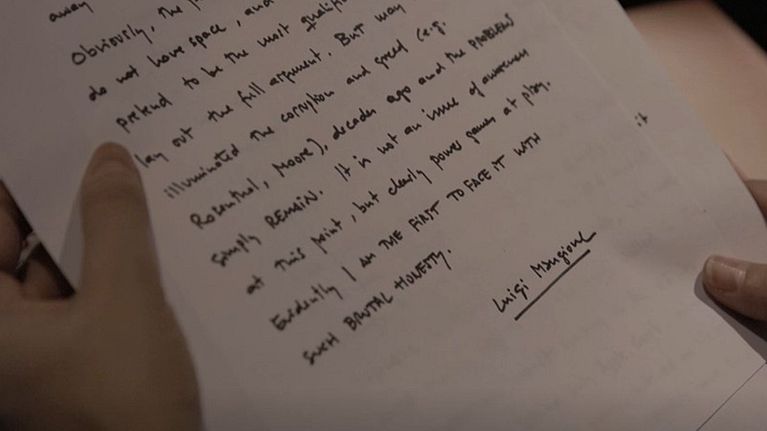 away
Obviously, the
do not have space, and
pretend to be the most
lay out the full argument. But may
illuminated the corruption and greed (e.g.
Rosenthal, Moore), decades ago and the PROBLEMS
simply REMAIN. It is not an issue of awareness
at this point, but clearly power games at play.
Evidently I AM THE FIRST TO FACE IT WITH
SUCH BRUTAL HONESTY.
Luigi Mangione